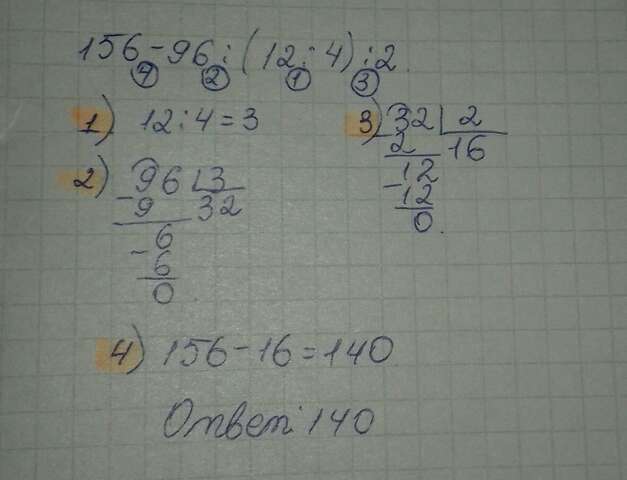 156-96:(12:4):2
4 2 1 3
1) 12:4=3
2) 96 3
-9 32
-6
6
0
3) 32 2
-2 16
-12
12
0
4) 156-16=140
Ответ: 140